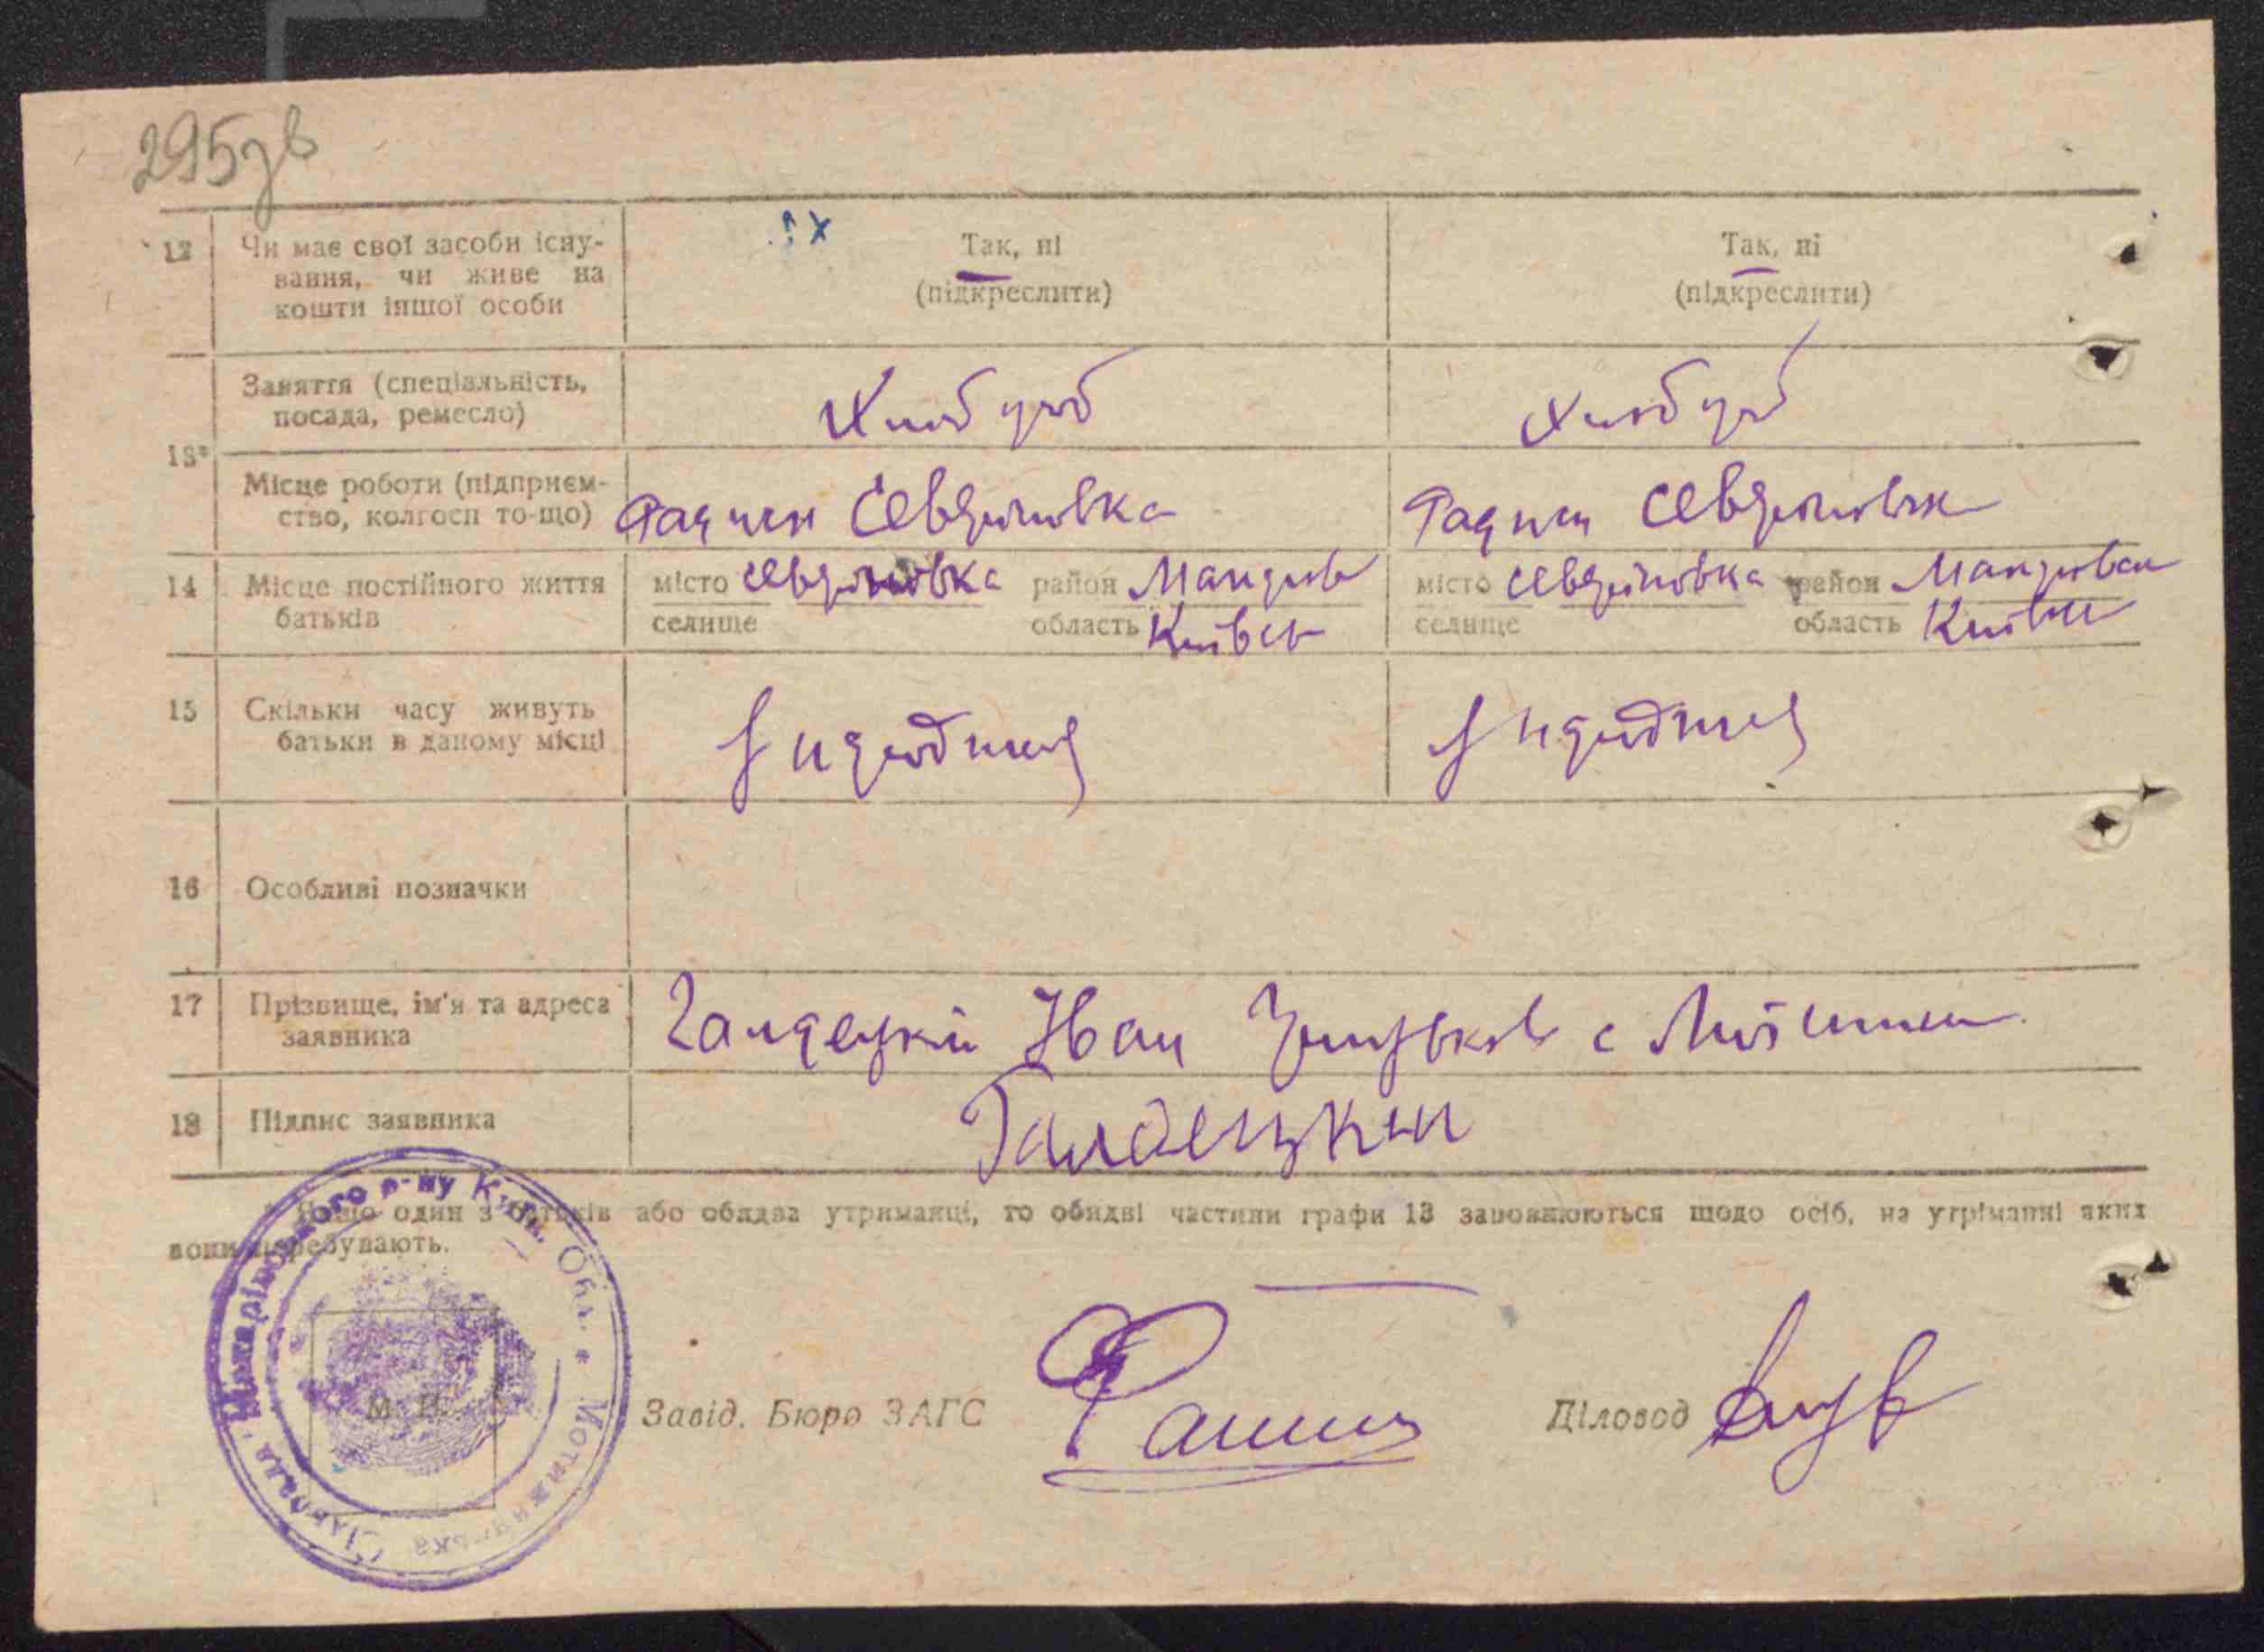 295зв
12 Чи має свої засоби існу-
вання, чи живе на
кошти іншої особи
Так, ні
(підкреслити)
Так, ні
(підкреслити)
13*
Заняття (спеціальність,
посада, ремесло)
Хлібороб
Хлібороб
Місце роботи (підприєм-
ство, колгосп то-що)
Севериновка
Севериновка
14 Місце постійного життя
батьків
місто Севериновка район Макарів
селище область Київськ
місто Севериновка район Макарівськ
селище область Київськ
15 Скільки часу живуть
батьки в даному місці
З народження
З народження
16 Особливі позначки
17 Прізвище, ім'я та адреса
заявника
Галдецкий Іван с
18 Підпис заявника
Галдецкий
* Якщо один з батьків або обидва утриманці, то обидві частини графи 13 заповнюються щодо осіб, на утриманні яких
вони перебувають.
Макарівського р-ну Київ. Обл. * Мотижинська Сільрада
М. П.
Завід. Бюро ЗАГС
Діловод